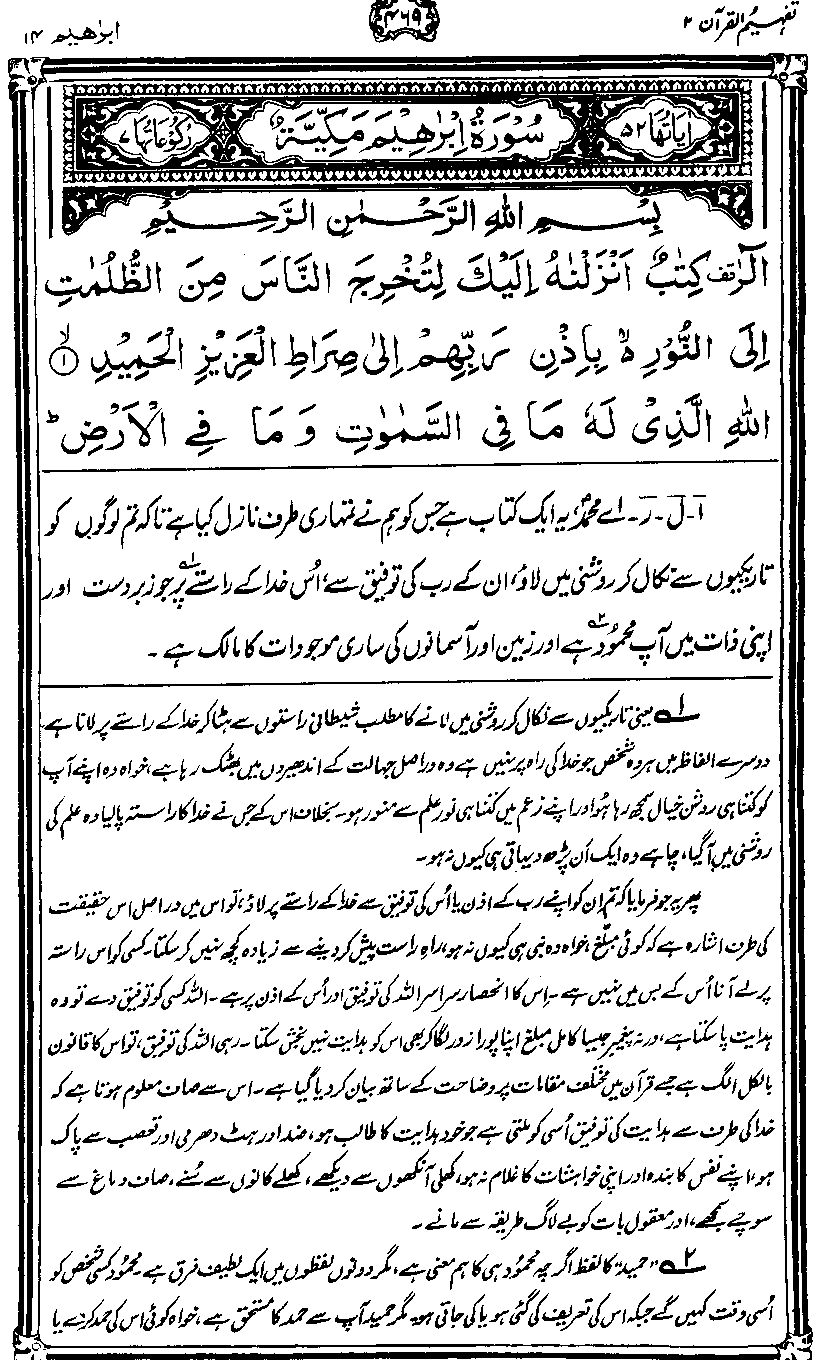 تفہیم القرآن ۲
۴۶۹
ابرٰھیم ۱۴
اٰیَاتُهَا ۵۲
سُوْرَةُ اِبْرٰهِيْمَ مَكِّيَّةٌ
رُكُوْعَاتُهَا ۷
بِسْمِ اللّٰهِ الرَّحْمٰنِ الرَّحِيْمِ
الٓرٰ كِتٰبٌ اَنْزَلْنٰهُ اِلَيْكَ لِتُخْرِجَ النَّاسَ مِنَ الظُّلُمٰتِ
اِلَى النُّوْرِ ۙ بِاِذْنِ رَبِّهِمْ اِلٰى صِرَاطِ الْعَزِيْزِ الْحَمِيْدِ ۙ ۱
اللّٰهِ الَّذِيْ لَهٗ مَا فِي السَّمٰوٰتِ وَ مَا فِي الْاَرْضِ ؕ
ا۔ ل۔ ر۔ اے محمدؐ، یہ ایک کتاب ہے جس کو ہم نے تمہاری طرف نازل کیا ہے تاکہ تم لوگوں کو
تاریکیوں سے نکال کر روشنی میں لاؤ، ان کے رب کی توفیق سے، اُس خدا کے راستے ۱ پر جو زبردست اور
اپنی ذات میں آپ محمُود ۲ ہے اور زمین اور آسمانوں کی ساری موجودات کا مالک ہے۔
۱ یعنی تاریکیوں سے نکال کر روشنی میں لانے کا مطلب شیطانی راستوں سے ہٹا کر خدا کے راستے پر لانا ہے
دوسرے الفاظ میں ہر وہ شخص جو خدا کی راہ پر نہیں ہے وہ دراصل جہالت کے اندھیروں میں بھٹک رہا ہے، خواہ وہ اپنے آپ
کو کتنا ہی روشن خیال سمجھ رہا ہو اور اپنے زعم میں کتنا ہی نور علم سے منور ہو۔ بخلاف اس کے جس نے خدا کا راستہ پالیا وہ علم کی
روشنی میں آگیا، چاہے وہ ایک اَن پڑھ دیہاتی ہی کیوں نہ ہو۔
پھر یہ جو فرمایا کہ تم ان کو اپنے رب کے اذن یا اُس کی توفیق سے خدا کے راستے پر لاؤ، تو اس میں دراصل اس حقیقت
کی طرف اشارہ ہے کہ کوئی مبلّغ، خواہ وہ نبی ہی کیوں نہ ہو، راہِ راست پیش کر دینے سے زیادہ کچھ نہیں کر سکتا۔ کسی کو اس راستہ
پر لے آنا اُس کے بس میں نہیں ہے۔ اِس کا انحصار سراسر اللہ کی توفیق اور اُس کے اذن پر ہے۔ اللہ کسی کو توفیق دے تو وہ
ہدایت پا سکتا ہے، ورنہ پیغمبر جیسا کامل مبلغ اپنا پورا زور لگا کر بھی اس کو ہدایت نہیں بخش سکتا۔ رہی اللہ کی توفیق، تو اس کا قانون
بالکل الگ ہے جسے قرآن میں مختلف مقامات پر وضاحت کے ساتھ بیان کر دیا گیا ہے۔ اس سے صاف معلوم ہوتا ہے کہ
خدا کی طرف سے ہدایت کی توفیق اُسی کو ملتی ہے جو خود ہدایت کا طالب ہو، ضد اور ہٹ دھرمی اور تعصب سے پاک
ہو، اپنے نفس کا بندہ اور اپنی خواہشات کا غلام نہ ہو، کھلی آنکھوں سے دیکھے، کھلے کانوں سے سُنے، صاف دماغ سے
سوچے سمجھے، اور معقول بات کو بے لاگ طریقہ سے مانے۔
۲ "حمید" کا لفظ اگرچہ محمُود ہی کا ہم معنی ہے، مگر دونوں لفظوں میں ایک لطیف فرق ہے۔ محمُود کسی شخص کو
اُسی وقت کہیں گے جبکہ اس کی تعریف کی گئی ہو یا کی جاتی ہو۔ مگر حمید آپ سے حمد کا مستحق ہے، خواہ کوئی اس کی حمد کرے یا